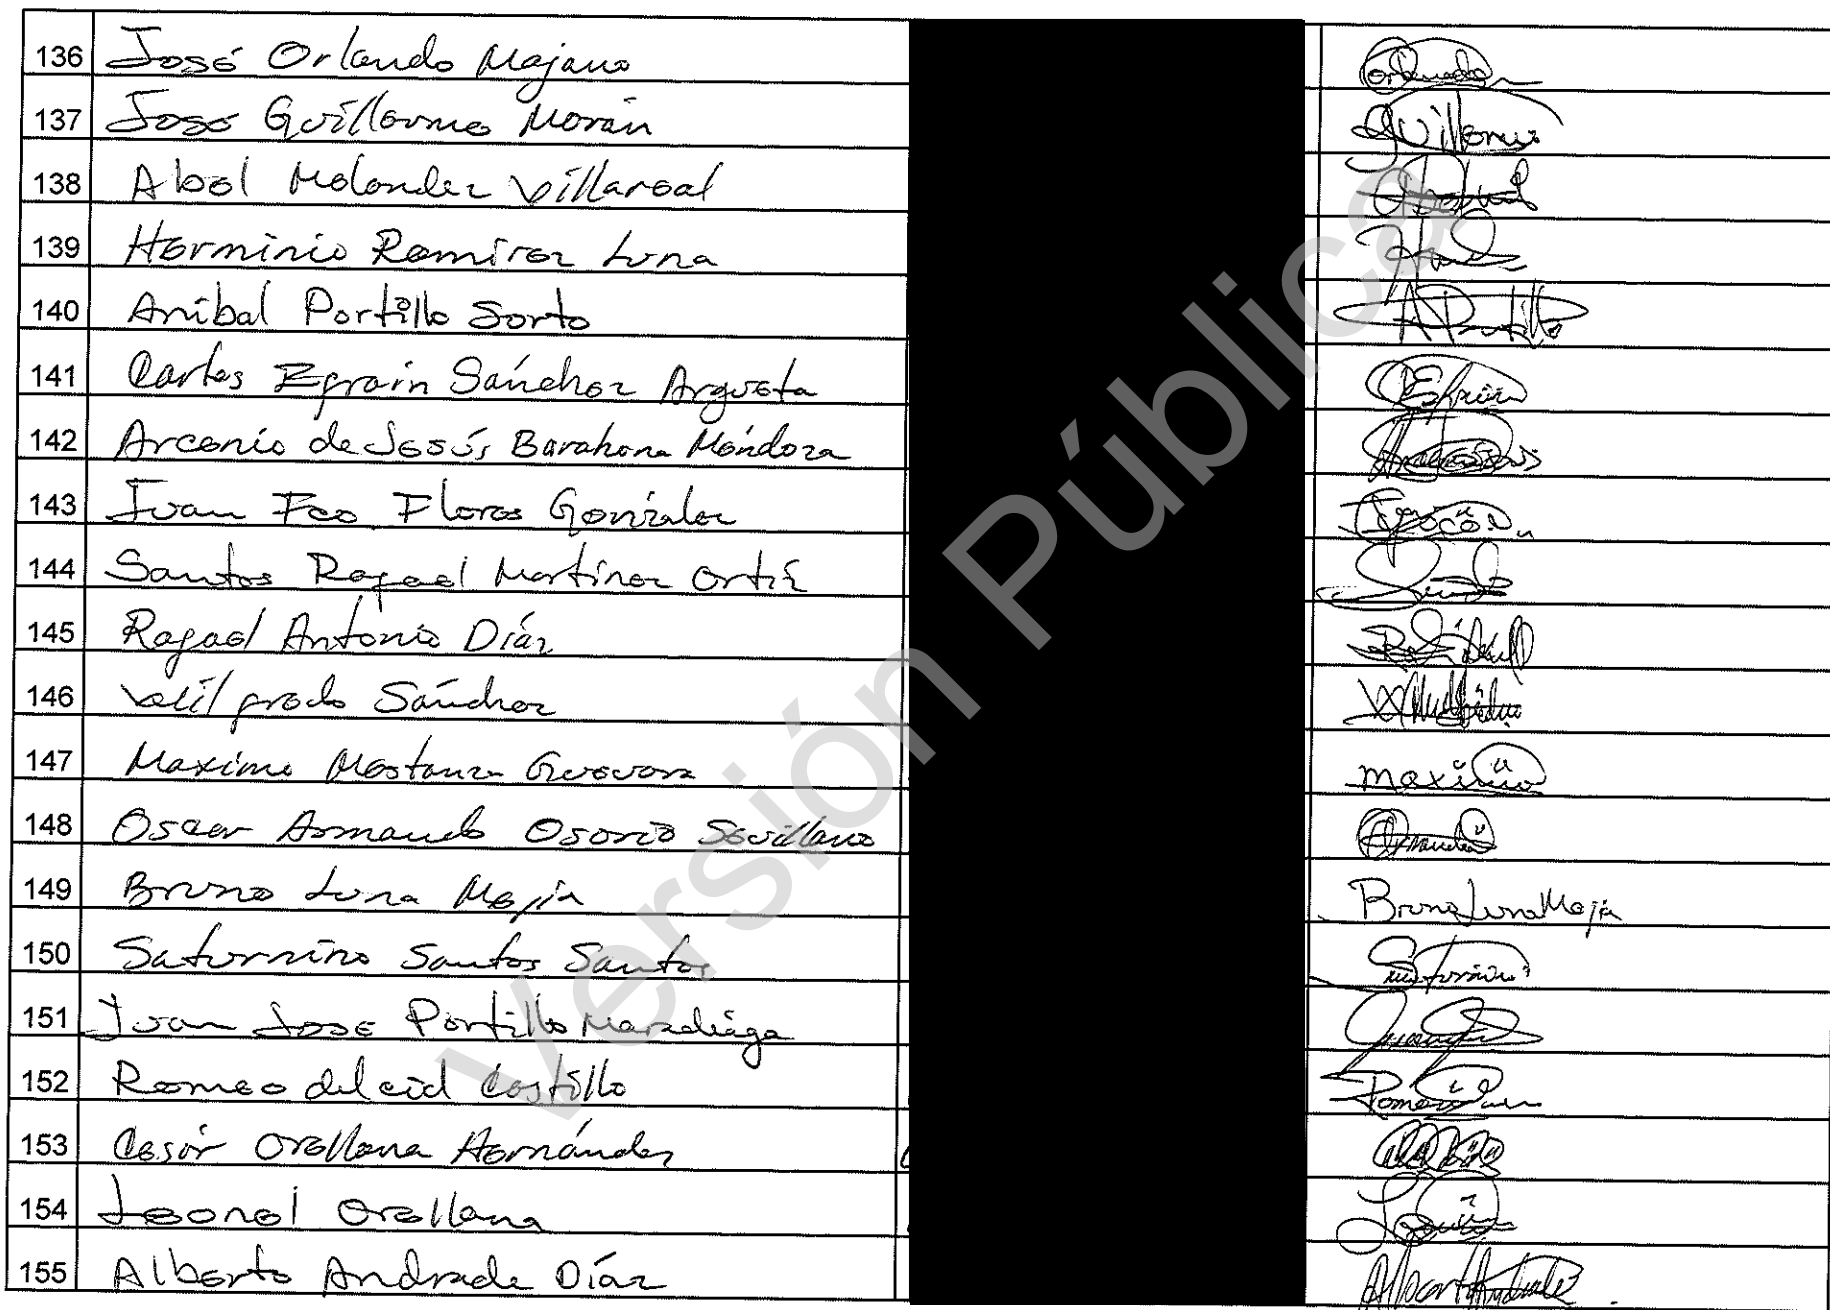 136 José Orlando Majano Orlando
137 José Guillermo Morán Guillermo
138 Abel Melendez Villareal
139 Herminio Ramirez Luna
140 Aníbal Portillo Sorto APortillo
141 Carlos Efrain Sánchez Argueta Efraín
142 Arcenio de Jesús Barahona Méndoza
143 Juan Fco Flores Gonzalez
144 Santos Rafael Martínez Ortíz
145 Rafael Antonio Díaz
146 Wilfredo Sánchez
147 Maximo Mestanza Guevara Maximo
148 Oscar Armando Osorio Sevillano Armando
149 Bruno Luna Mejía Bruno Luna Mejía
150 Saturnino Santos Santos Saturnino
151 Juan Jose Portillo Maradiaga
152 Romeo del cid Castillo Romeo
153 Cesár Orellana Hernández
154 Leonel Orellana
155 Alberto Andrade Díaz Albert Andrade
Versión Pública